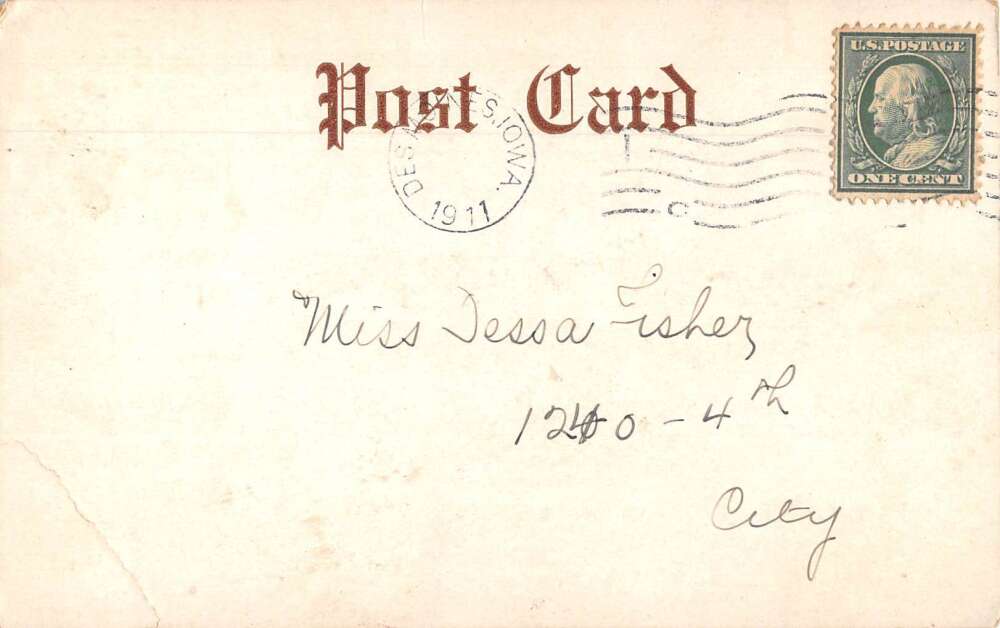 Post Card
U.S. POSTAGE
DES MOINES, IOWA.
1911
ONE CENT
Miss Dessa Fisher
4th
City